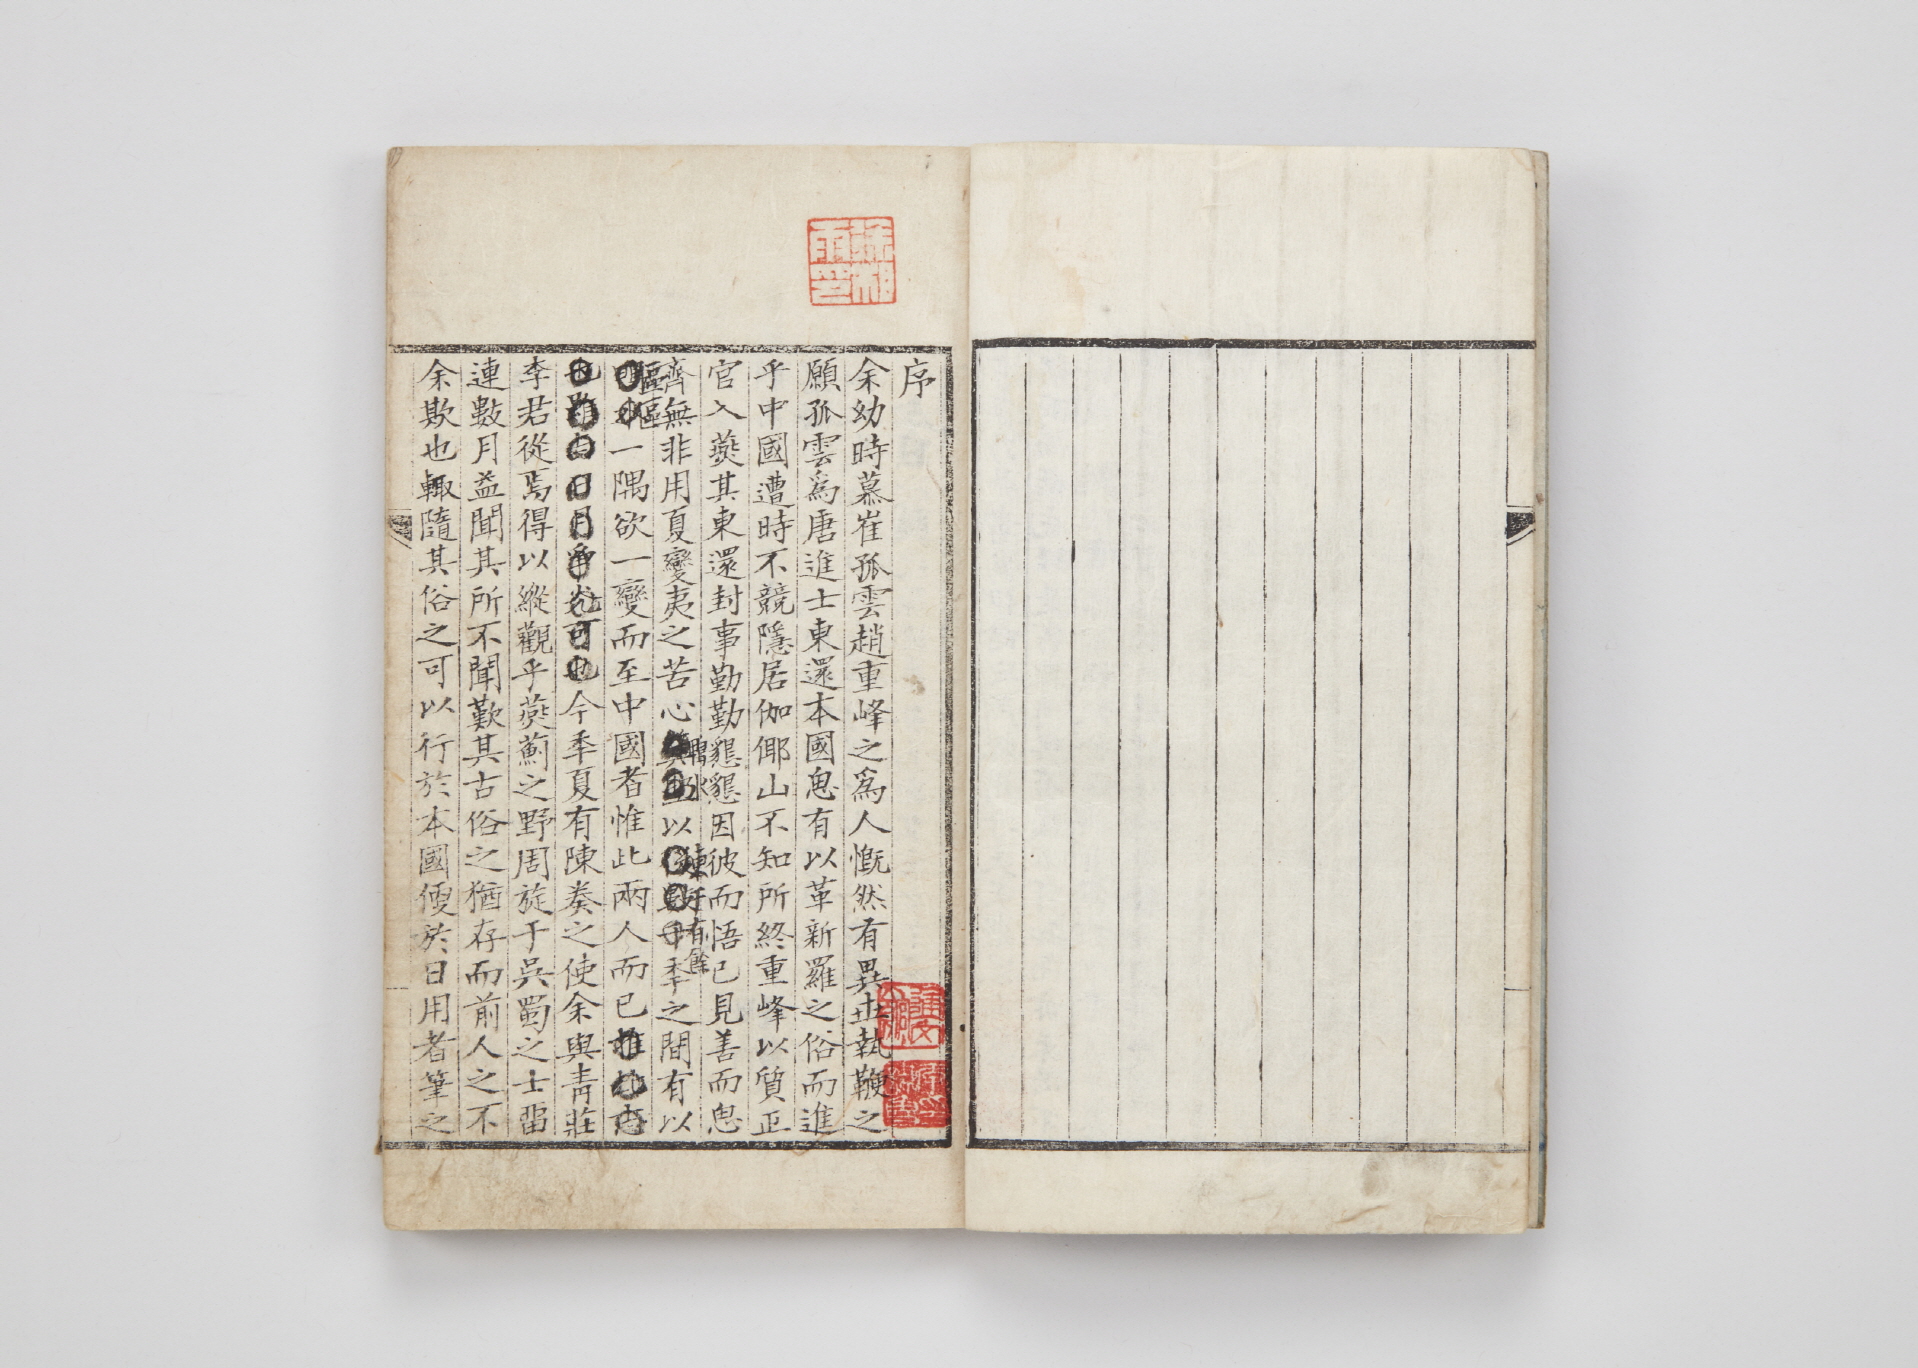 徐相雨印
序
余幼時慕崔孤雲趙重峰之爲人慨然有異世執鞭之
願孤雲爲唐進士東還本國思有以革新羅之俗而進
乎中國遭時不競隱居伽倻山不知所終重峰以質正
官入燕其東還封事勤勤懇懇因彼而悟己見善而思
齊無非用夏變夷之苦心鴨水以東千有餘季之間有以
區區一隅欲一變而至中國者惟此兩人而已
今季夏有陳奏之使余與靑莊
李君從焉得以縱觀乎燕薊之野周旋于吳蜀之士留
連數月益聞其所不聞歎其古俗之猶存而前人之不
余欺也輒隨其俗之可以行於本國便於日用者筆之